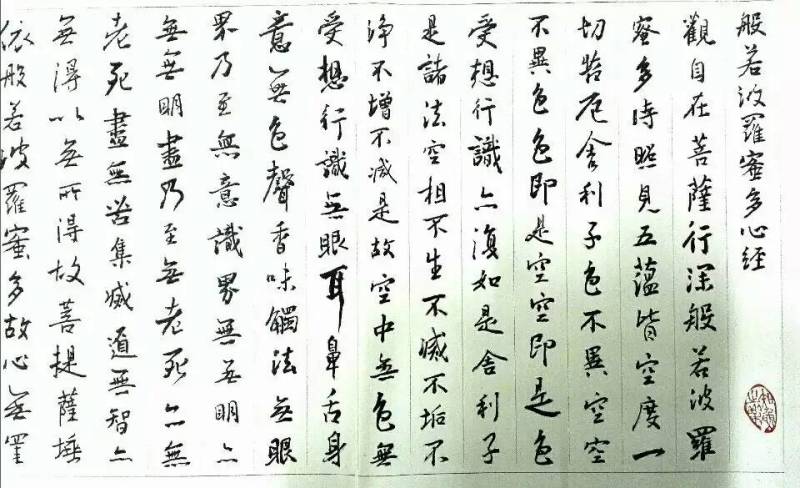 般若波羅蜜多心經
觀自在菩薩行深般若波羅
蜜多時照見五蘊皆空度一
切苦厄舍利子色不異空空
不異色色即是空空即是色
受想行識亦復如是舍利子
是諸法空相不生不滅不垢不
淨不增不減是故空中無色無
受想行識無眼耳鼻舌身
意無色聲香味觸法無眼
界乃至無意識界無無明亦
無無明盡乃至無老死亦無
老死盡無苦集滅道無智亦
無得以無所得故菩提薩埵
依般若波羅蜜多故心無罣